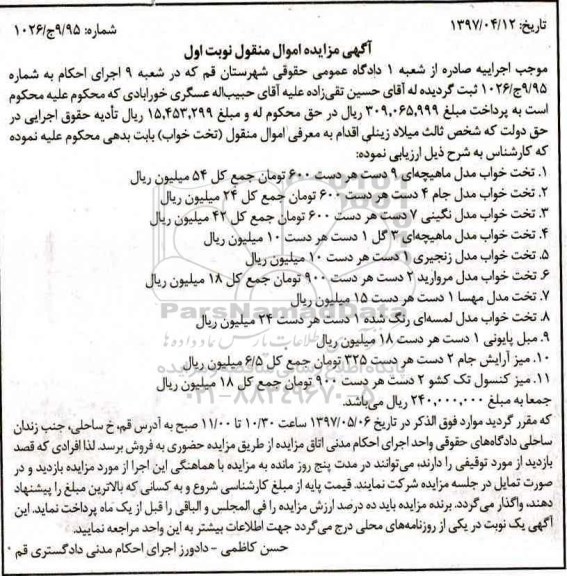 تاریخ: ۱۳۹۷/۰۴/۱۲
شماره: ۹/۹۵ج/۱۰۲۶
آگهی مزایده اموال منقول نوبت اول
موجب اجراییه صادره از شعبه ۱ دادگاه عمومی حقوقی شهرستان قم که در شعبه ۹ اجرای احکام به شماره
۹/۹۵ج/۱۰۲۶ ثبت گردیده له آقای حسین تقی‌زاده علیه آقای حبیب‌اله عسگری خورابادی که محکوم علیه محکوم
است به پرداخت مبلغ ۳۰۹,۰۶۵,۹۹۹ ریال در حق محکوم له و مبلغ ۱۵,۴۵۳,۲۹۹ ریال تأدیه حقوق اجرایی در
حق دولت که شخص ثالث میلاد زینلی اقدام به معرفی اموال منقول (تخت خواب) بابت بدهی محکوم علیه نموده
که کارشناس به شرح ذیل ارزیابی نموده:
۱. تخت خواب مدل ماهیچه‌ای ۹ دست هر دست ۶۰۰ تومان جمع کل ۵۴ میلیون ریال
۲. تخت خواب مدل جام ۴ دست هر دست ۶۰۰ تومان جمع کل ۲۴ میلیون ریال
۳. تخت خواب مدل نگینی ۷ دست هر دست ۶۰۰ تومان جمع کل ۴۲ میلیون ریال
۴. تخت خواب مدل ماهیچه‌ای ۳ گل ۱ دست هر دست ۱۰ میلیون ریال
۵. تخت خواب مدل زنجیری ۱ دست هر دست ۱۰ میلیون ریال
۶. تخت خواب مدل مروارید ۲ دست هر دست ۹۰۰ تومان جمع کل ۱۸ میلیون ریال
۷. تخت مدل مهسا ۱ دست هر دست ۱۵ میلیون ریال
۸. تخت خواب مدل لمسه‌ای رنگ شده ۱ دست هر دست ۲۴ میلیون ریال
۹. مبل پاپونی ۱ دست هر دست ۱۸ میلیون ریال
۱۰. میز آرایش جام ۲ دست هر دست ۳۲۵ تومان جمع کل ۶/۵ میلیون ریال
۱۱. میز کنسول تک کشو ۲ دست هر دست ۹۰۰ تومان جمع کل ۱۸ میلیون ریال
جمعا به مبلغ ۲۴۰,۰۰۰,۰۰۰ ریال می‌باشد.
که مقرر گردید موارد فوق الذکر در تاریخ ۱۳۹۷/۰۵/۰۶ ساعت ۱۰/۳۰ تا ۱۱/۰۰ صبح به آدرس قم، خ ساحلی، جنب زندان
ساحلی دادگاه‌های حقوقی واحد اجرای احکام مدنی اتاق مزایده از طریق مزایده حضوری به فروش برسد. لذا افرادی که قصد
بازدید از مورد توقیفی را دارند، می‌توانند در مدت پنج روز مانده به مزایده با هماهنگی این اجرا از مورد مزایده بازدید و در
صورت تمایل در جلسه مزایده شرکت نمایند. قیمت پایه از مبلغ کارشناسی شروع و به کسانی که بالاترین مبلغ را پیشنهاد
دهند، واگذار می‌گردد. برنده مزایده باید ده درصد ارزش مزایده را فی المجلس و الباقی را قبل از یک ماه پرداخت نماید. این
آگهی یک نوبت در یکی از روزنامه‌های محلی درج می‌گردد جهت اطلاعات بیشتر به این واحد مراجعه نمایید.
حسن کاظمی - دادورز اجرای احکام مدنی دادگستری قم
ParsNamadData
۰۲۱-۸۸۳۴۹۶۷۰-۵